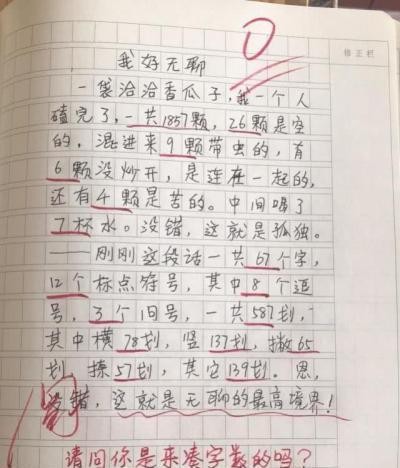 0
修正栏
我好无聊
一袋洽洽香瓜子，我一个人
磕完了，一共1857颗，26颗是空
的，混进来9颗带虫的，有
6颗没炒开，是连在一起的，
还有4颗是苦的。中间喝了
7杯水。没错，这就是孤独。
——刚刚这段话一共67个字，
12个标点符号，其中8个逗
号，3个句号，一共587划，
其中横78划，竖137划，撇65
划，捺57划，其它139划。恩，
没错，这就是无聊的最高境界！
请问你是来凑字数的吗？